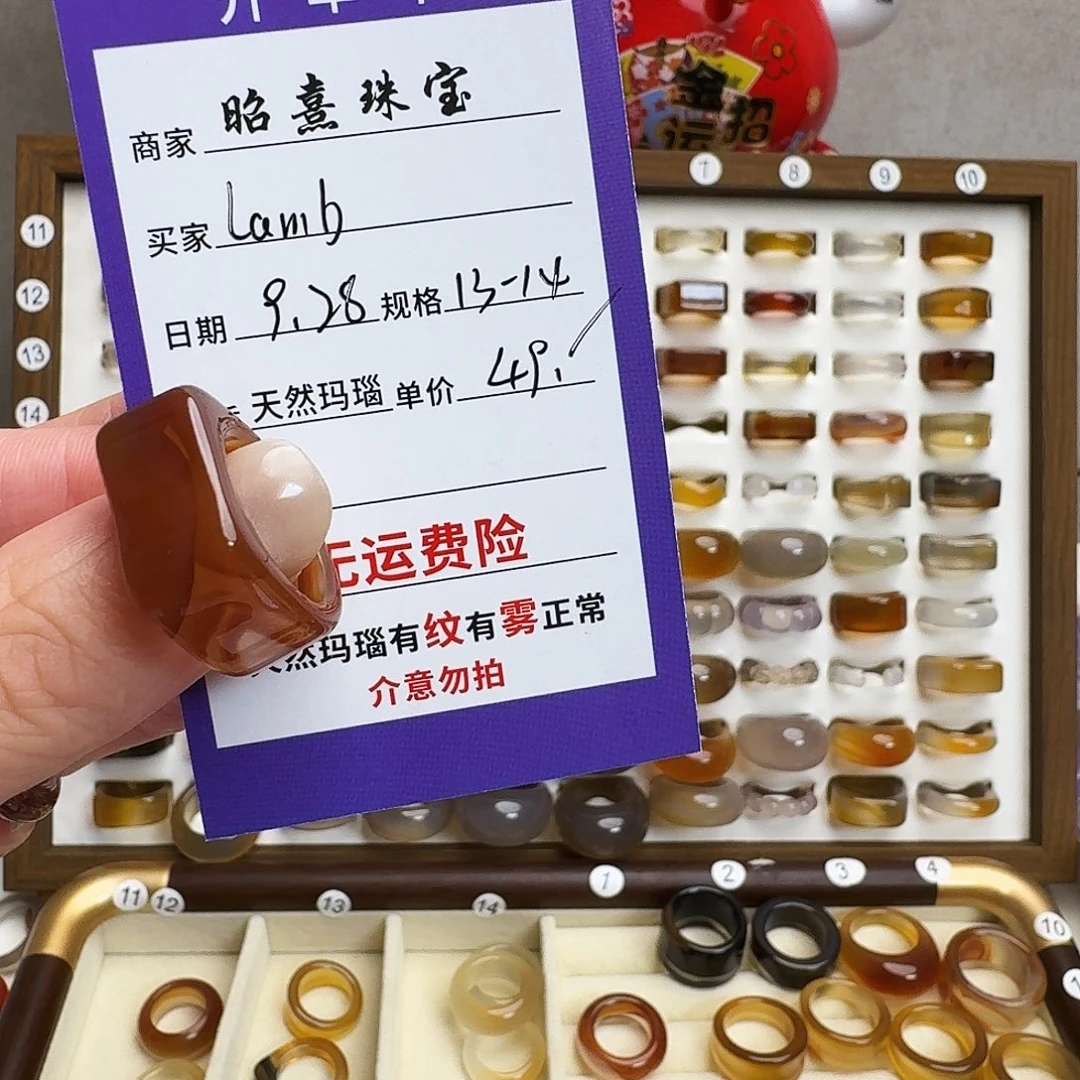 商家 昭熹珠宝
买家 Lamb
日期 9.28 规格 13-14
天然玛瑙 单价 49.
无运费险
天然玛瑙有纹有雾正常
介意勿拍
金
运 招
7 8 9 10
11
12
13
14
11 12 13 14 1 2 3 4
10